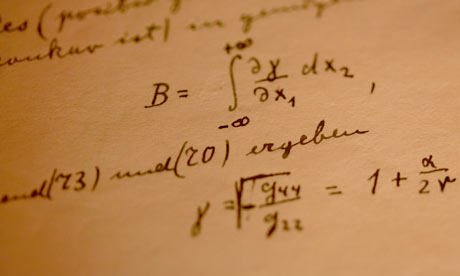 (positiv
ist) in
B = ∫_{-∞}^{+∞} ∂γ/∂x₁ dx₂ ,
und (73) und (70) ergeben
γ = √(-g₄₄/g₂₂) = 1 + α/2r